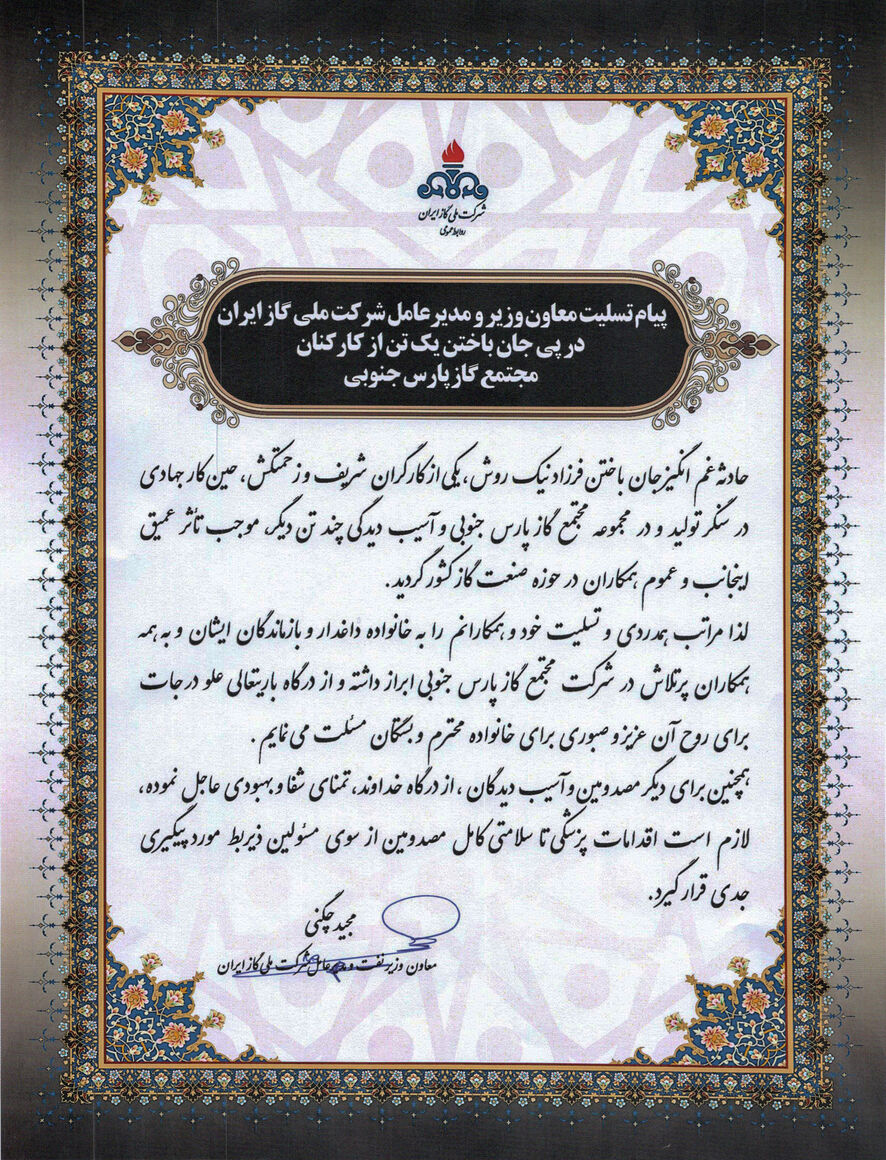 شرکت ملی گاز ایران
روابط عمومی
پیام تسلیت معاون وزیر و مدیر عامل شرکت ملی گاز ایران
در پی جان باختن یک تن از کارکنان
مجتمع گاز پارس جنوبی
حادثه غم انگیز جان باختن فرزاد نیک روش، یکی از کارگران شریف و زحمتکش، حین کار جهادی
در سنگر تولید و در مجموعه مجتمع گاز پارس جنوبی و آسیب دیدگی چند تن دیگر، موجب تأثر عمیق
اینجانب و عموم همکاران در حوزه صنعت گاز کشور گردید.
لذا مراتب همدردی و تسلیت خود و همکارانم را به خانواده داغدار و بازماندگان ایشان و به همه
همکاران پرتلاش در شرکت مجتمع گاز پارس جنوبی ابراز داشته و از درگاه باریتعالی علو درجات
برای روح آن عزیز و صبوری برای خانواده محترم و بستگان مسئلت می نمایم.
همچنین برای دیگر مصدومین و آسیب دیدگان، از درگاه خداوند، تمنای شفا و بهبودی عاجل نموده،
لازم است اقدامات پزشکی تا سلامتی کامل مصدومین از سوی مسئولین ذیربط مورد پیگیری
جدی قرار گیرد.
مجید چگنی
معاون وزیر نفت و مدیرعامل شرکت ملی گاز ایران